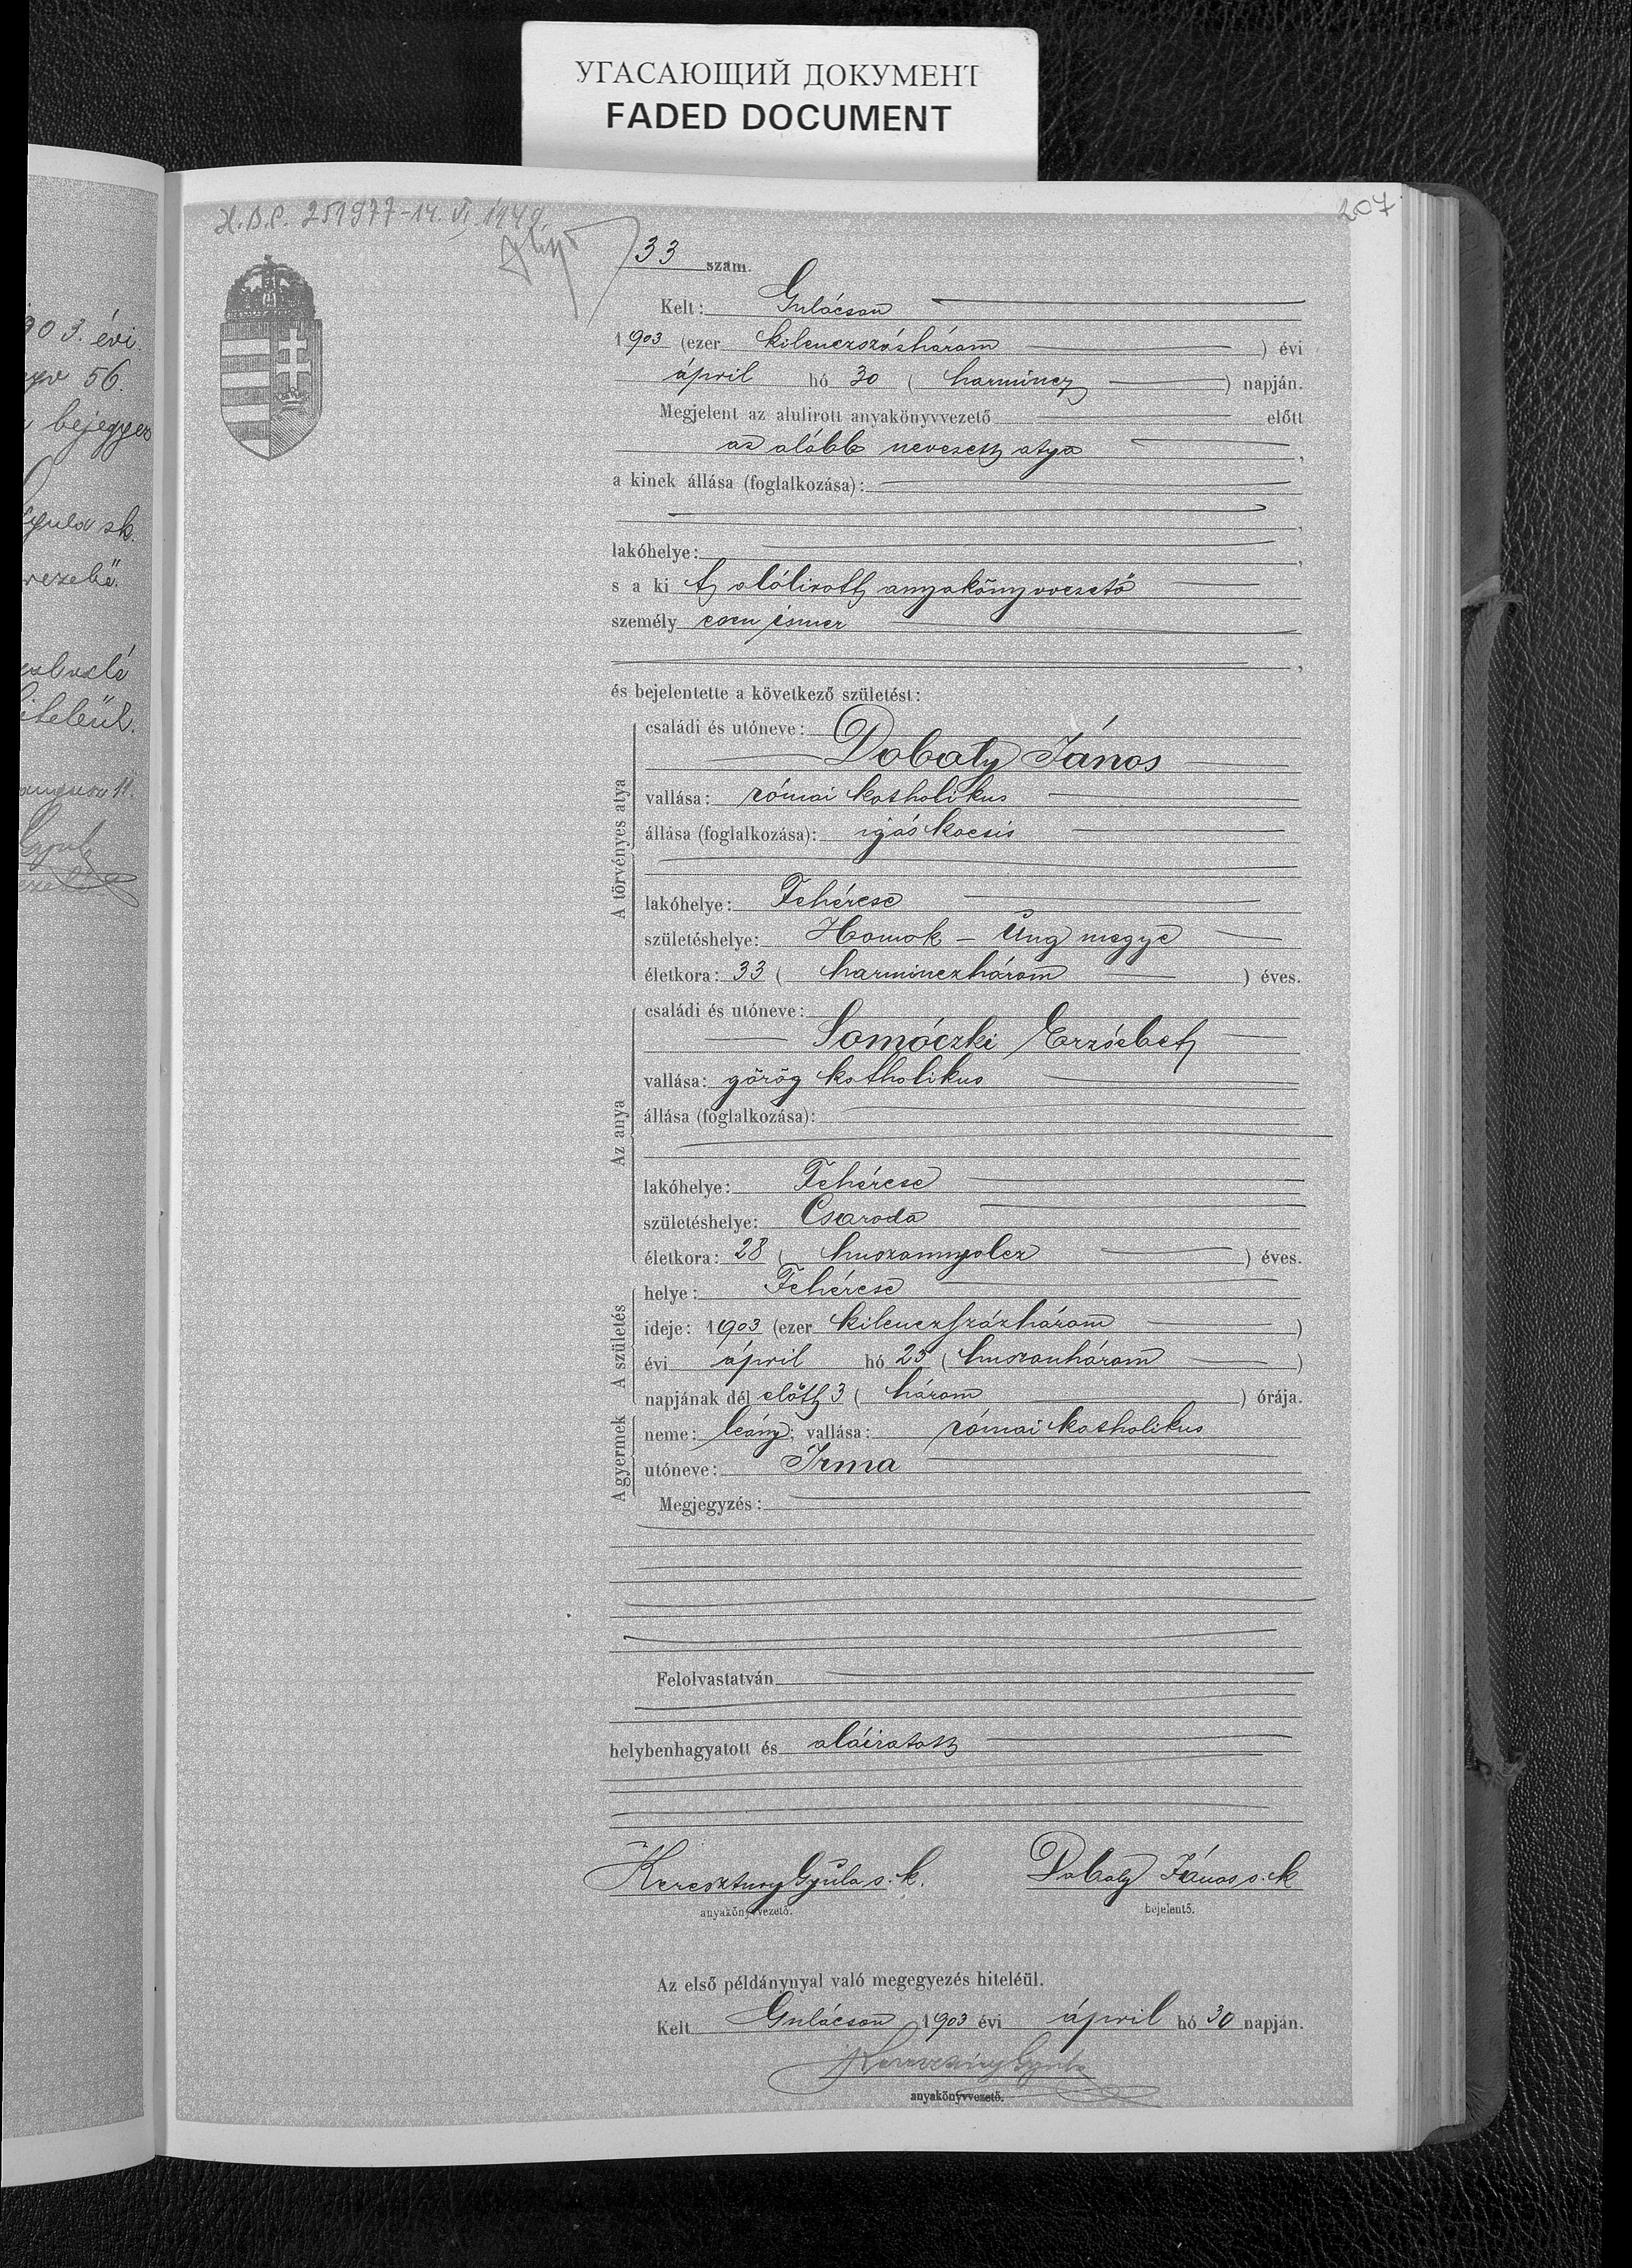 УГАСАЮЩИЙ ДОКУМЕНТ
FADED DOCUMENT
207
33 szám.
Kelt: Gulácson
1903 (ezer kilenczszázhárom ) évi
ápril hó 30 ( harmincz ) napján.
Megjelent az alulirott anyakönyvvezető előtt
az alább nevezett atya ,
a kinek állása (foglalkozása):
,
lakóhelye: ,
s a ki t alólirott anyakönyvvezető
személy esen ismer
,
és bejelentette a következő születést:
A törvényes atya
családi és utóneve:
Dobaty János
vallása: római katholikus
állása (foglalkozása): igás kocsis
lakóhelye: Fehércse
születéshelye: Homok – Ung megye
életkora: 33 ( harminczhárom ) éves.
Az anya
családi és utóneve:
Somóczki Erzsébet
vallása: görög katholikus
állása (foglalkozása):
lakóhelye: Fehércse
születéshelye: Csaroda
életkora: 28 ( huszonnyolcz ) éves.
A születés
helye: Fehércse
ideje: 1903 (ezer kilenczszázhárom )
évi ápril hó 23 ( huszonhárom )
napjának dél előtt 3 ( három ) órája.
A gyermek
neme: leány; vallása: római katholikus
utóneve: Irma
Megjegyzés:
Felolvastatván
helybenhagyatott és aláiratott
Keresztury Gyula s. k. Dobaty János s. k
anyakönyvvezető. bejelentő.
Az első példánynyal való megegyezés hiteléül.
Kelt Gulácson 1903 évi ápril hó 30 napján.
Keresztury Gyula
anyakönyvvezető.